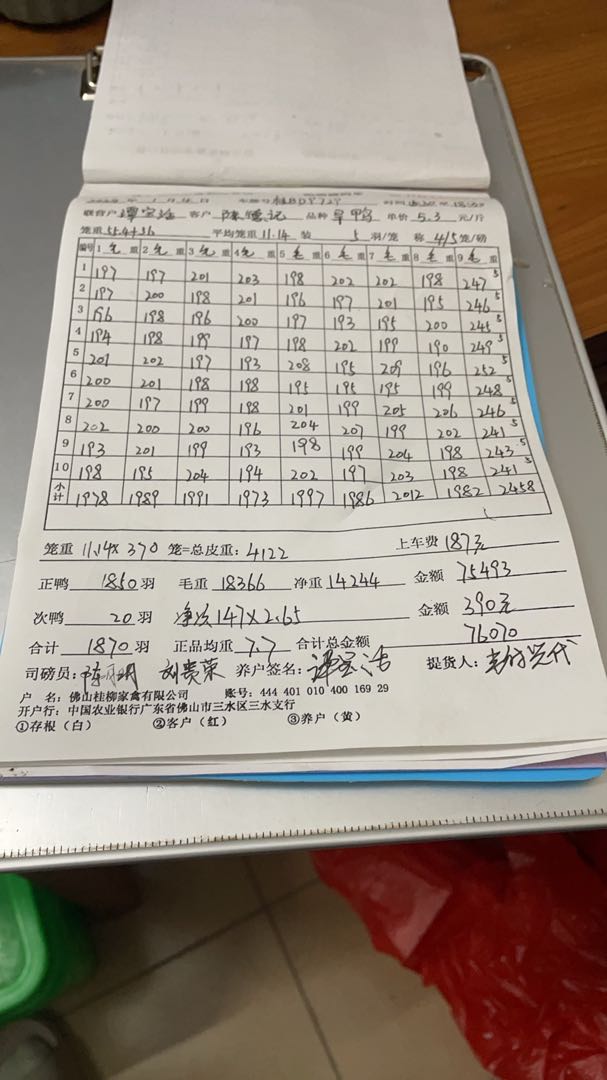 联营户 客户 陈德记 品种 旱鸭 单价 5.3 元/斤
笼重 55.4÷36 平均笼重 11.14 装 5 羽/笼 称 4/5 笼/磅
编号 1 毛 重 2 毛 重 3 毛 重 4 毛 重 5 毛 重 6 毛 重 7 毛 重 8 毛 重 9 毛 重
1 197 197 201 203 198 202 202 198 247 5
2 197 200 198 201 196 197 201 195 246 5
3 196 198 196 200 197 193 195 200 245 5
4 194 198 199 197 198 202 199 190 249 5
5 201 202 197 193 208 195 209 196 252 5
6 200 201 198 198 195 195 195 199 248 5
7 200 197 199 198 201 199 205 206 246 5
8 202 200 200 196 204 207 199 202 241 5
9 193 201 199 193 198 199 204 198 243 5
10 198 195 204 194 202 197 203 198 241 5
小计 1978 1989 1991 1973 1997 1986 2012 1982 2458
笼重 11.14× 370 笼=总皮重: 4122 上车费 187元
正鸭 1850 羽 毛重 18366 净重 14244 金额 75493
次鸭 20 羽 净次 147×2.65 金额 390元
合计 1870 羽 正品均重 7.7 合计总金额 76070
司磅员: 刘贵荣 养户签名: 提货人:
户 名: 佛山桂柳家禽有限公司 账号: 444 401 010 400 169 29
开户行: 中国农业银行广东省佛山市三水区三水支行
①存根（白） ②客户（红） ③养户（黄）